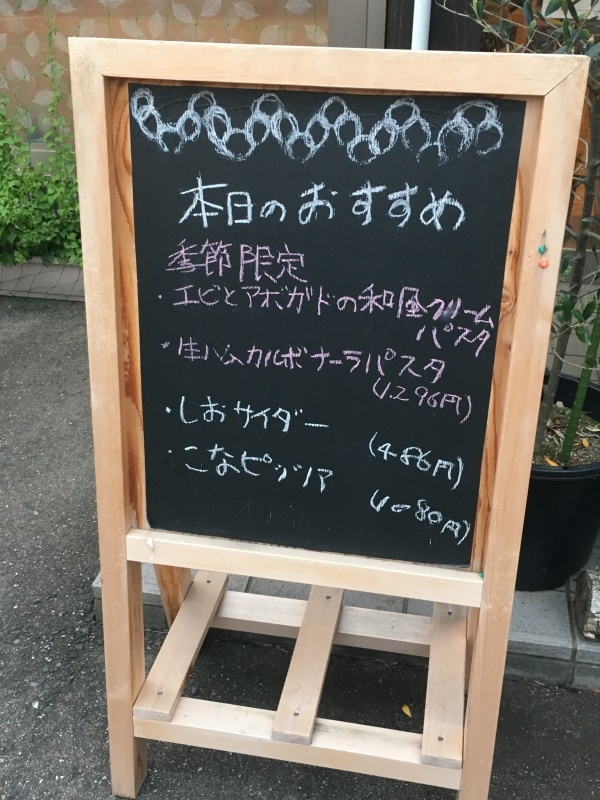 本日のおすすめ
季節限定
・エビとアボガドの和風クリーム
パスタ
・生ハムカルボナーラパスタ
(1.296円)
・しおサイダー
(486円)
・こなピッツア
(1080円)